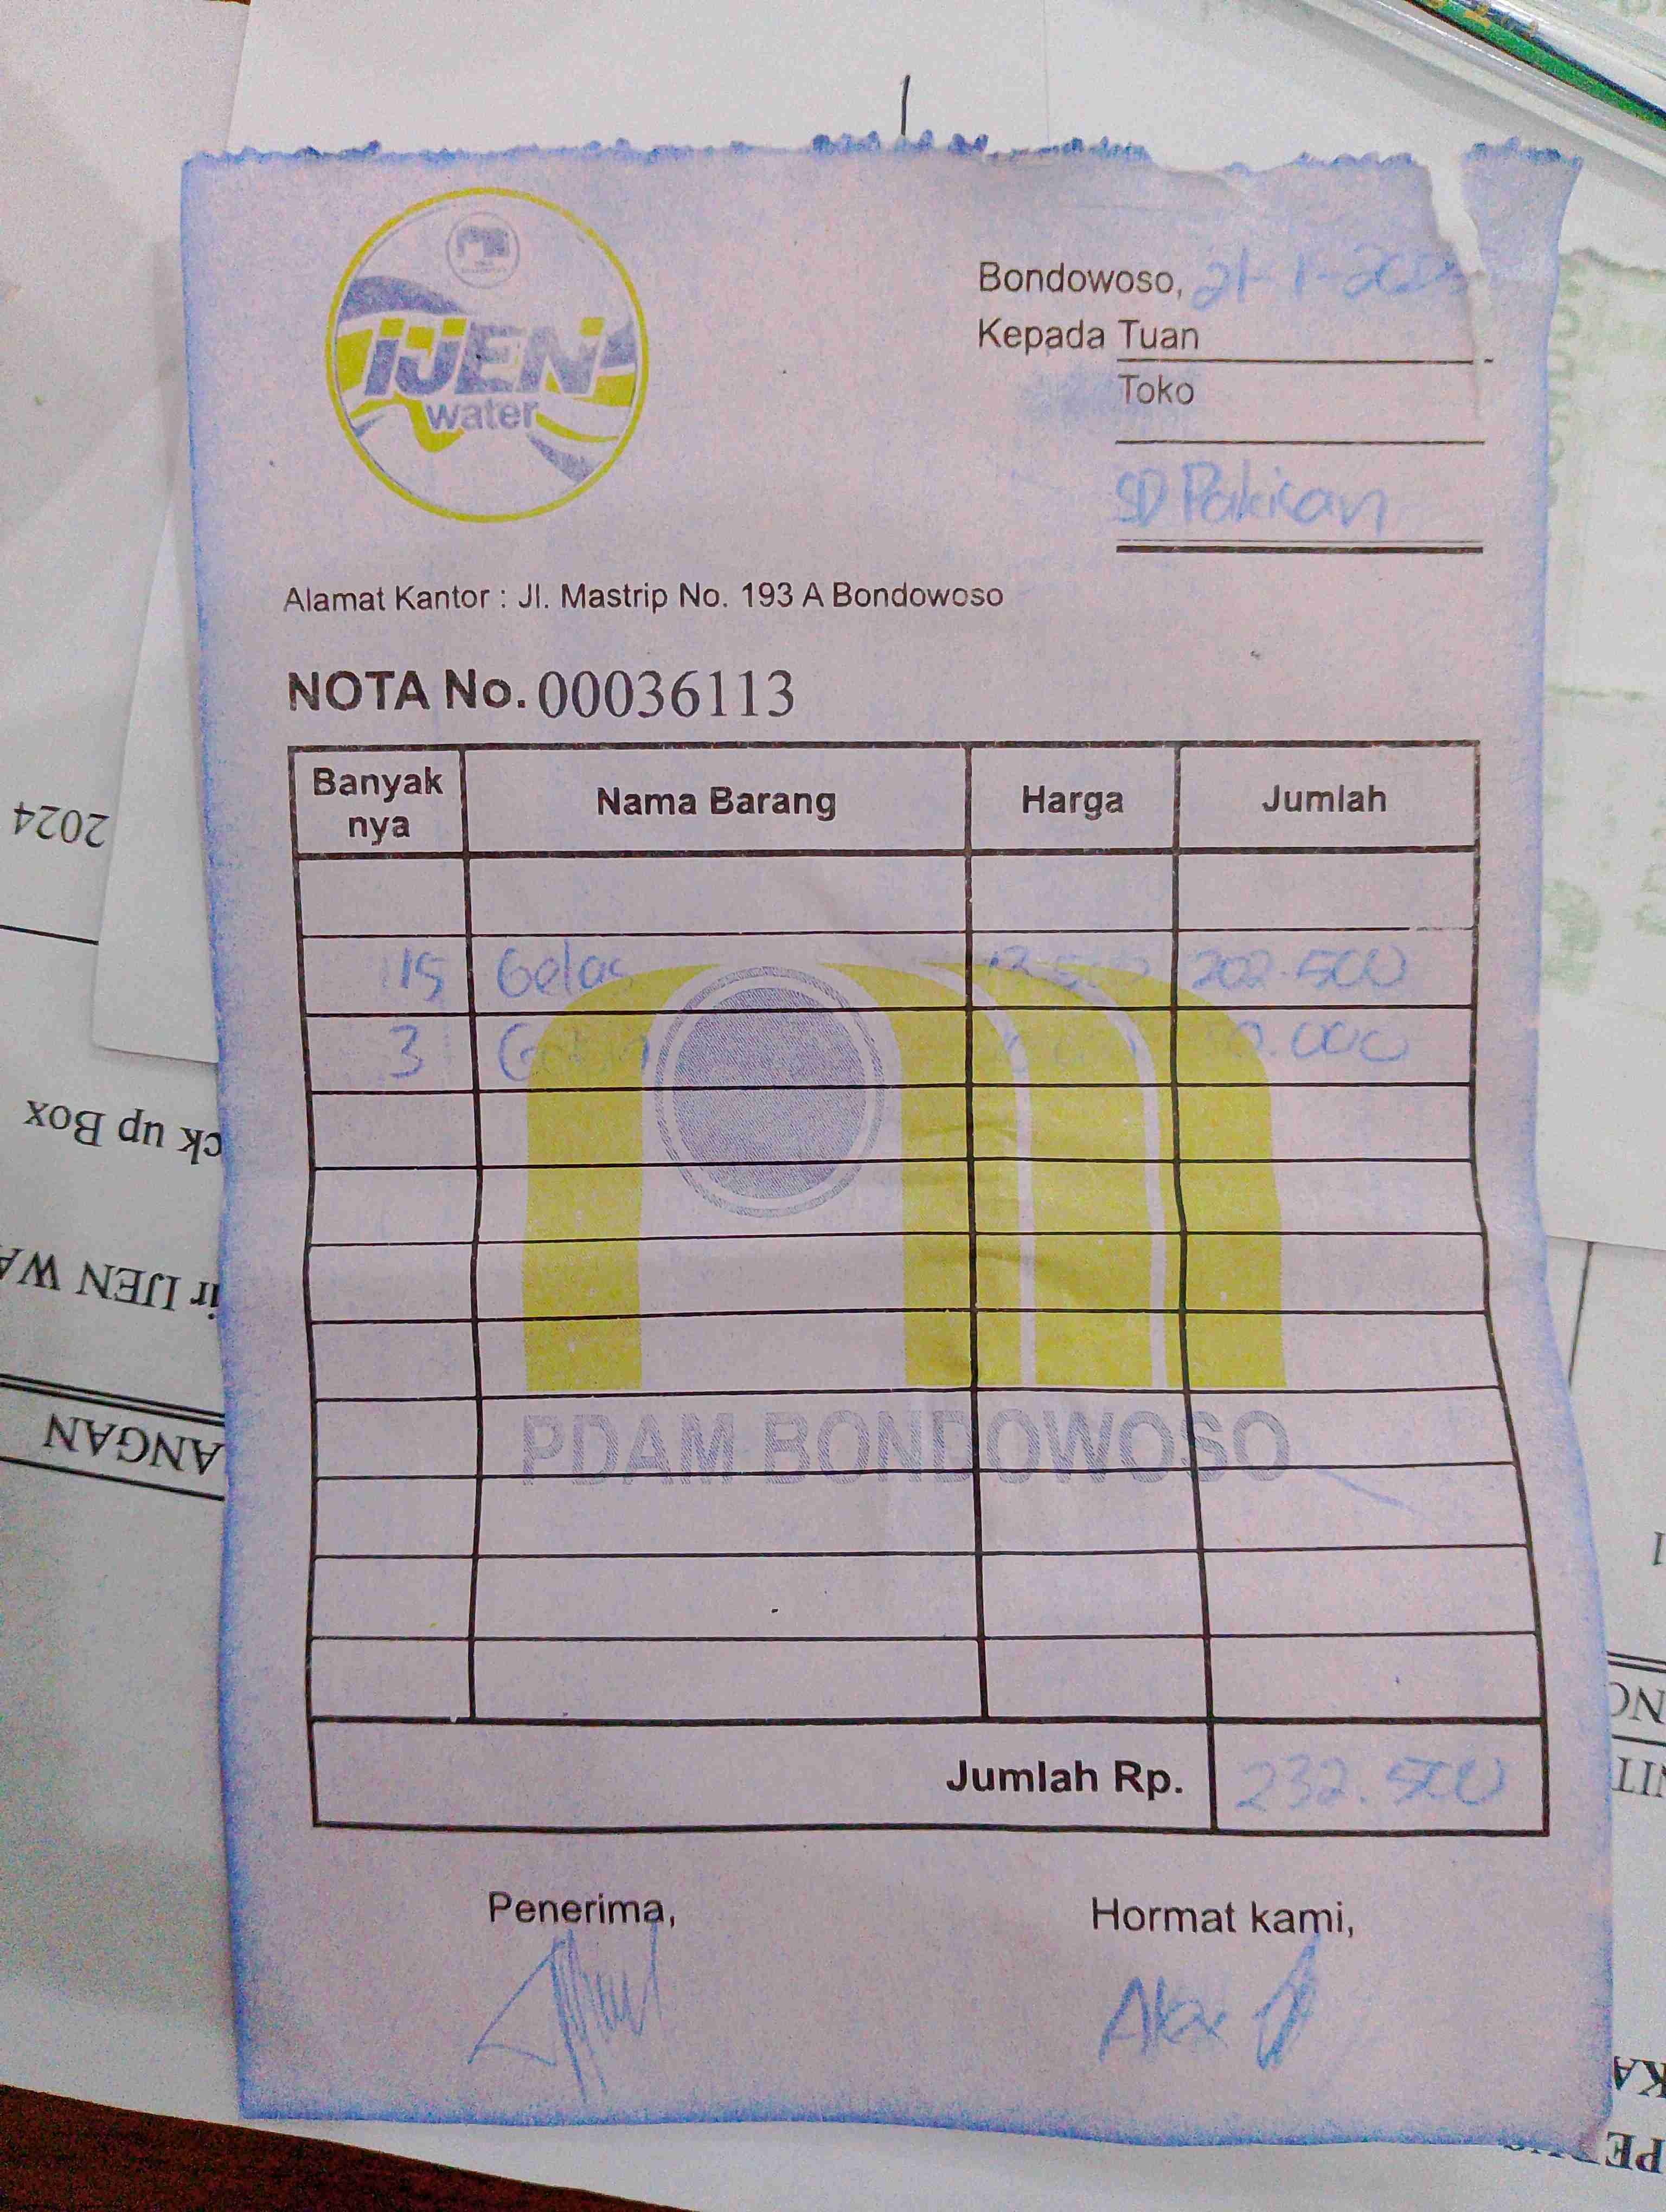 IJEN
water
Bondowoso, 21-1-2025
Kepada Tuan
Toko
SD Pakisan
Alamat Kantor : Jl. Mastrip No. 193 A Bondowoso
NOTA No. 00036113
Banyak nya Nama Barang Harga Jumlah
15 Gelas 13.500 202.500
3
PDAM BONDOWOSO
Jumlah Rp. 232.500
Penerima,
Hormat kami,
Alex
2024
ck up Box
ir IJEN WA
ANGAN